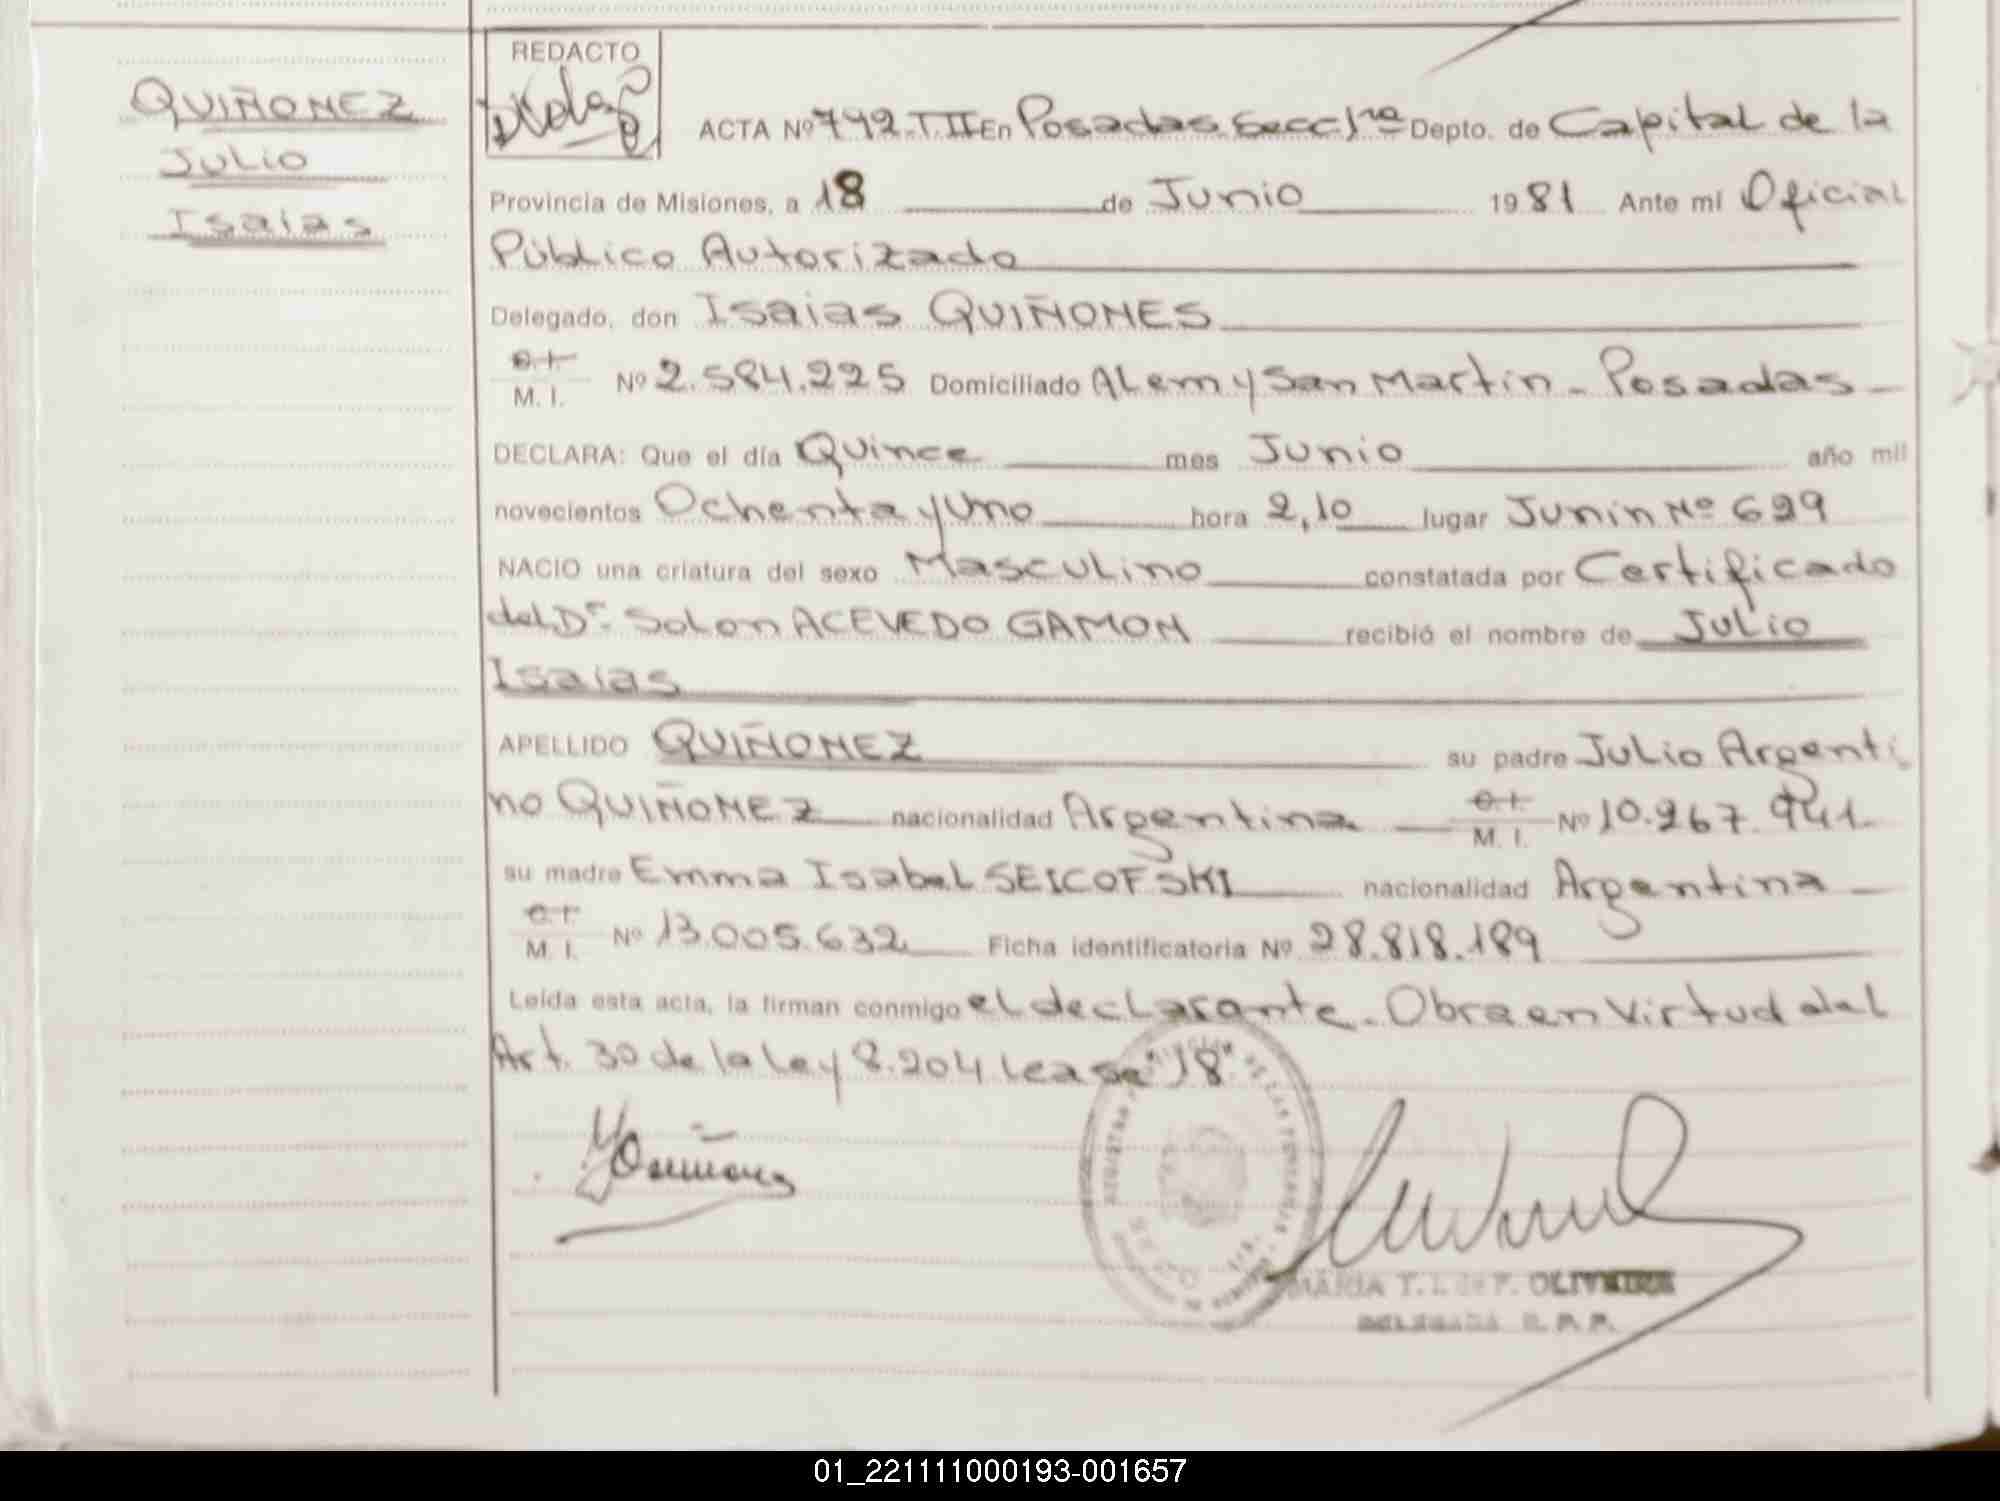 QUIÑONEZ
JULIO
Isaias
REDACTO
ACTA Nº 792.T.II En Posadas Secc 1ra Depto. de Capital de la
Provincia de Misiones, a 18 de Junio 1981 Ante mi Oficial
Público Autorizado
Delegado, don Isaias QUIÑONES
C.I.
M. I. Nº 2.584.225 Domiciliado Alem y San Martín - Posadas -
DECLARA: Que el día Quince mes Junio año mil
novecientos Ochenta y Uno hora 2,10 lugar Junín Nº 629
NACIO una criatura del sexo Masculino constatada por Certificado
del Dr. Solon ACEVEDO GAMON recibió el nombre de Julio
Isaias
APELLIDO QUIÑONEZ su padre Julio Argenti
no QUIÑONEZ nacionalidad Argentina C.I.
M. I. Nº 10.967.941
su madre Emma Isabel SEICOFSKI nacionalidad Argentina -
C.I.
M. I. Nº 13.005.632 Ficha identificatoria Nº 28.818.189
Leída esta acta, la firman conmigo el declarante. Obra en Virtud del
Art. 30 de la Ley 8.204 lease "18"
MARIA T. L. de F. OLIVEIRA
DELEGADA R. P. P.
01_221111000193-001657